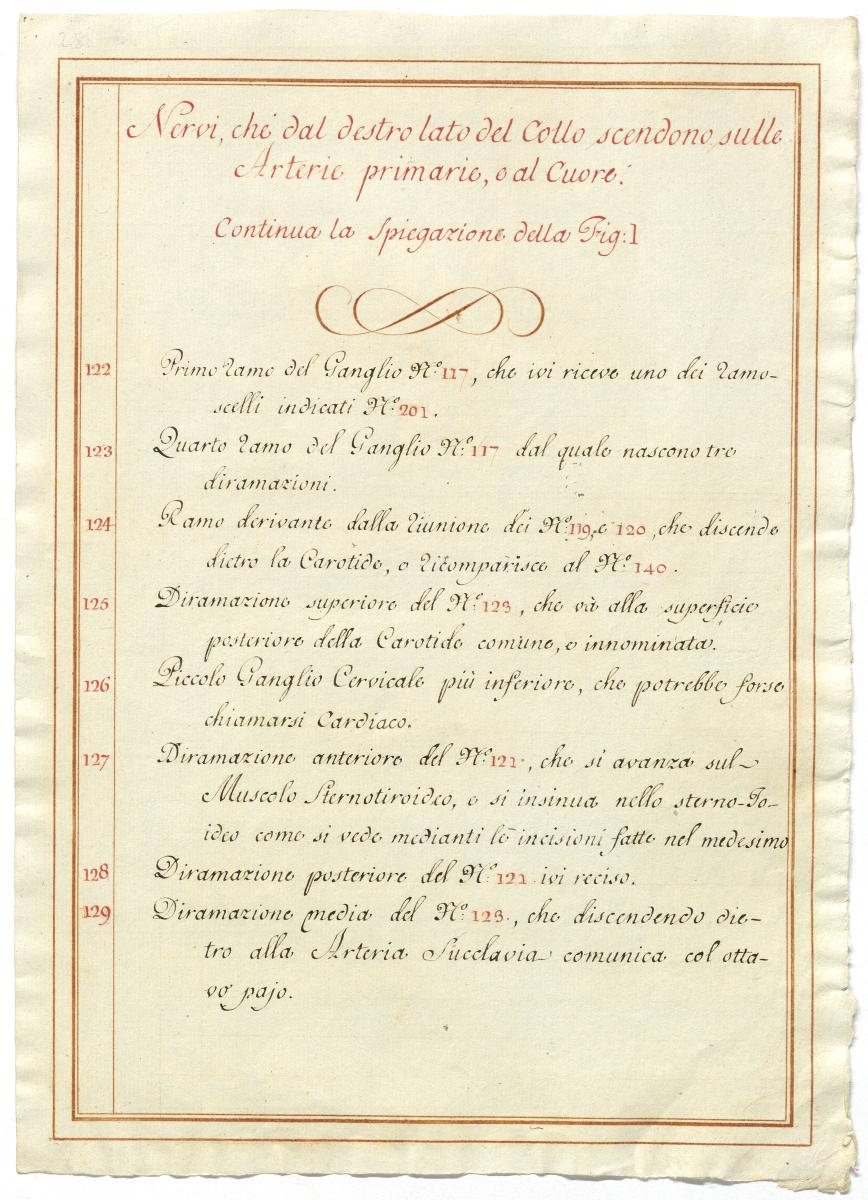 Nervi, che dal destro lato del Collo scendono sulle
Arterie primarie, e al Cuore.
Continua la Spiegazione della Fig: 1
122 Primo ramo del Ganglio N.º 117, che ivi riceve uno dei ramo-
scelli indicati N.º 201.
123 Quarto ramo del Ganglio N.º 117 dal quale nascono tre
diramazioni.
124 Ramo derivante dalla riunione dei N.º 119, e 120, che discende
dietro la Carotide, e ricomparisce al N.º 140.
125 Diramazione superiore del N.º 123, che và alla superficie
posteriore della Carotide comune, e innominata.
126 Piccolo Ganglio Cervicale più inferiore, che potrebbe forse
chiamarsi Cardiaco.
127 Diramazione anteriore del N.º 121, che si avanza sul
Muscolo Sternotiroideo, e si insinua nello sterno-Jo-
ideo come si vede medianti le incisioni fatte nel medesimo
128 Diramazione posteriore del N.º 121 ivi reciso.
129 Diramazione media del N.º 123, che discendendo die-
tro alla Arteria Succlavia comunica col otta-
vo pajo.